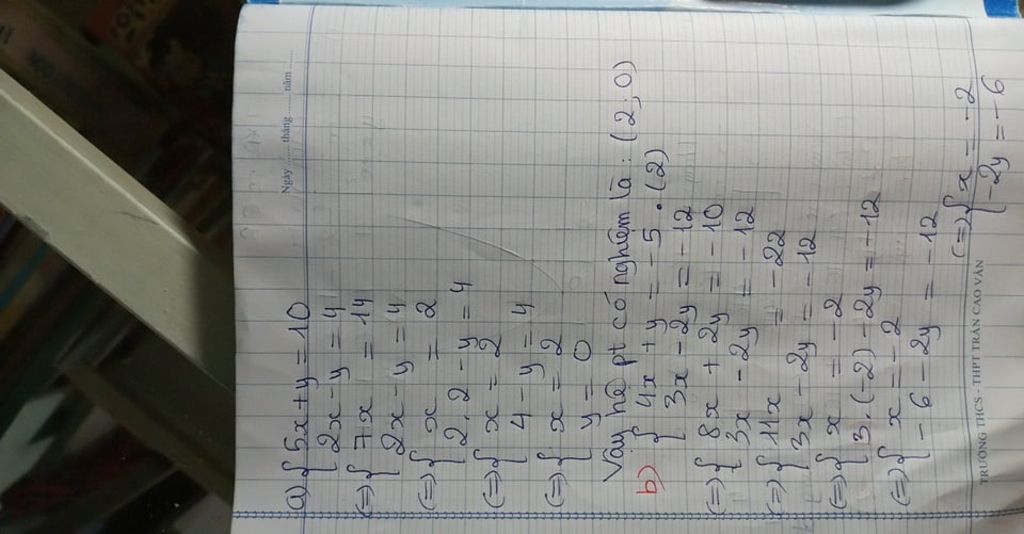 Ngày ...... tháng ...... năm ......
a) { 5x + y = 10
2x - y = 4
(=) { 7x = 14
2x - y = 4
(=) { x = 2
2.2 - y = 4
(=) { x = 2
4 - y = 4
(=) { x = 2
y = 0
Vậy hệ pt có nghiệm là: (2; 0)
b) { 4x + y = -5 . (2)
3x - 2y = -12
(=) { 8x + 2y = -10
3x - 2y = -12
(=) { 11x = -22
3x - 2y = -12
(=) { x = -2
3.(-2) - 2y = -12
(=) { x = -2
-6 - 2y = -12
(=) { x = -2
-2y = -6
TRƯỜNG THCS - THPT TRẦN CAO VÂN